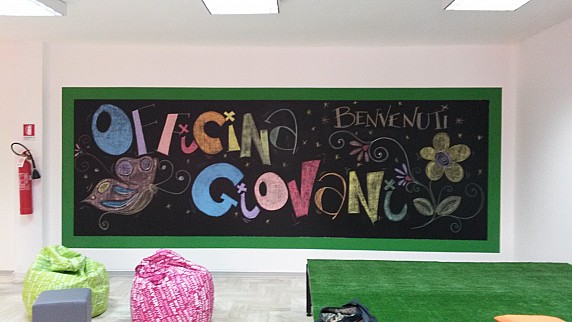 OFFiCiNa
BENVENUTi
GiOVANi